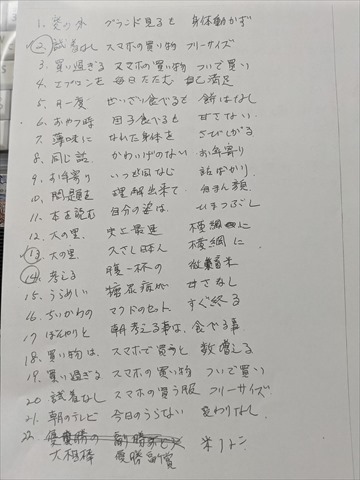 1. 窓の外 グランド見ると 身体動かず
2. 試着なし スマホの買い物 フリーサイズ
3. 買い過ぎる スマホの買い物 ついで買い
4. エプロンを 毎日たたむ 自己満足
5. 月一度 ぜいたく食べると 餅はなし
6. おやつ時 団子食べると 甘さない
7. 薄味に なれた身体を さびしがる
8. 同じ話 かわいげのない お年寄り
9. お年寄り いつも同なじ 話ばかり
10. 問題を 理解出来て 自まん顔
11. 本を読む 自分の姿は ひまつぶし
12. 大の里 史上最速 横綱に
13. 大の里 久さし日本人 横綱に
14. 考える 腹一杯の 備蓄米
15. うらめしい 糖尿病が 甘さなし
16. ちいかわの マクドのセット すぐ終る
17 ぼんやりと 朝考える事は、食べる事
18. 買い物は、スマホで買うと 数増える
19. 買い過ぎる スマホの買い物 ついで買い
20 試着なし スマホの買う服 フリーサイズ
21. 朝のテレビ 今日のうらない 変わりなし
22. 優勝の 米1トン
大相撲 優勝副賞